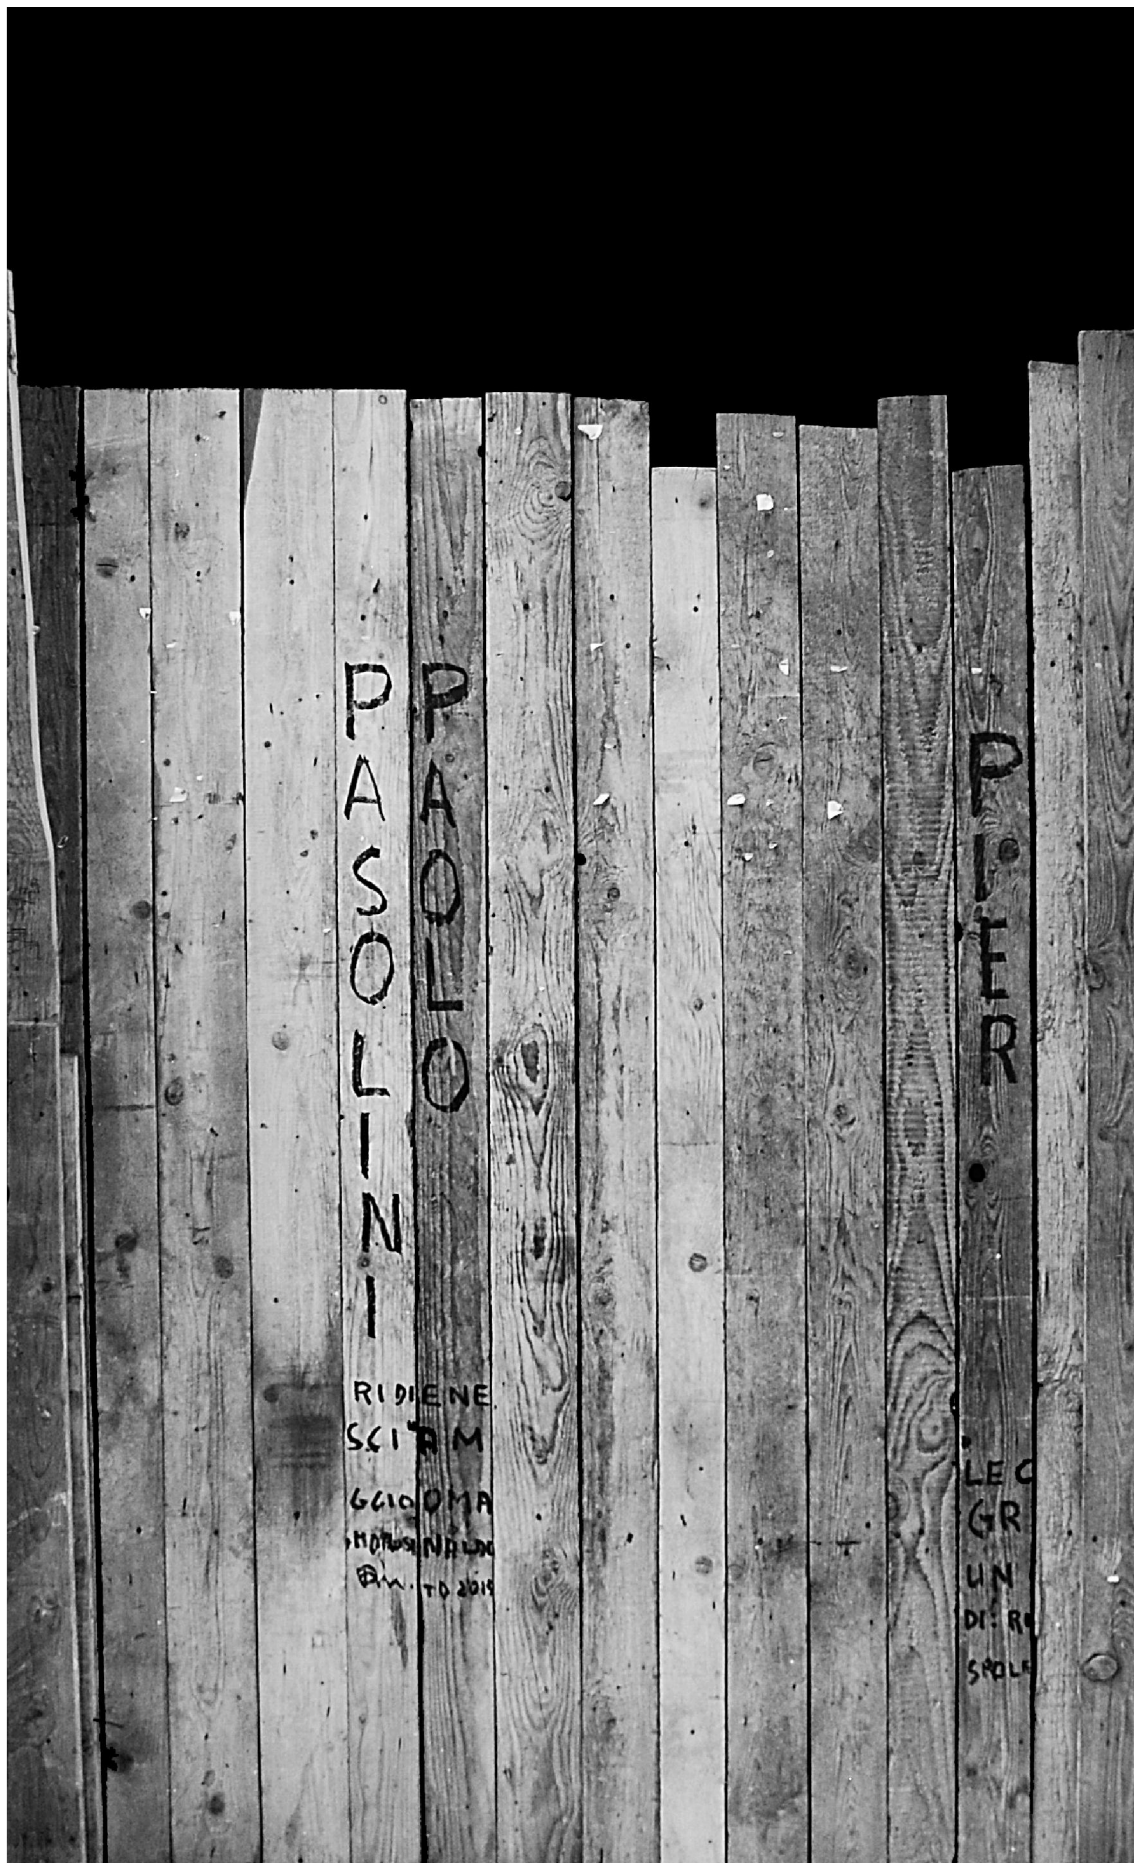 PASOLINI
PAOLO
PIER
RIDIENE
SCIAM
GGIOOMA
TO 2019
LEC
GR
UN
DI: RI
SPOLE